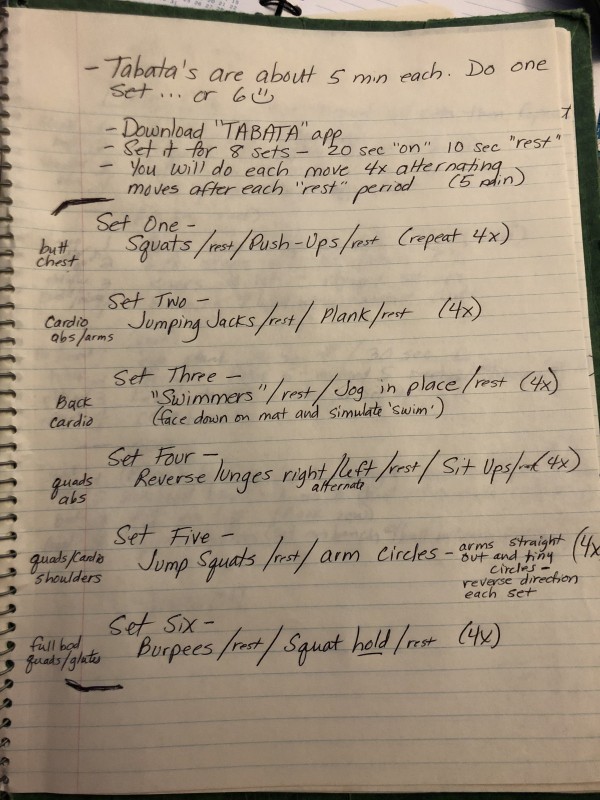 - Tabata's are about 5 min each. Do one
set... or 6 ☺
- Download "TABATA" app
- Set it for 8 sets - 20 sec "on" 10 sec "rest"
- You will do each move 4x alternating
moves after each "rest" period (5 min)
Set One -
butt
chest
Squats/rest/Push-Ups/rest (repeat 4x)
Set Two -
Cardio
abs/arms
Jumping Jacks/rest/Plank/rest (4x)
Set Three -
Back
cardio
"Swimmers"/rest/Jog in place/rest (4x)
(face down on mat and simulate 'swim')
Set Four -
quads
abs
Reverse lunges right/left/rest/Sit Ups/rest (4x)
alternate
Set Five -
quads/Cardio
shoulders
Jump Squats/rest/arm circles - arms straight (4x
out and tiny
circles -
reverse direction
each set
Set Six -
full bod
quads/glutes
Burpees/rest/Squat hold/rest (4x)